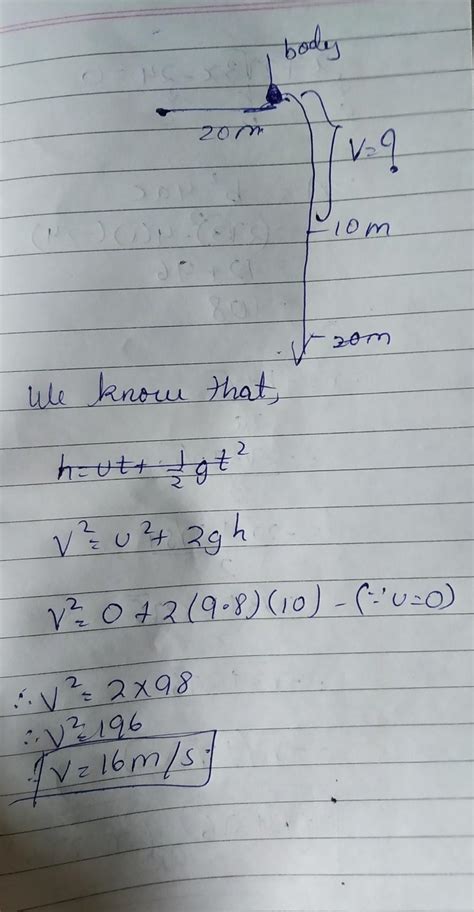 body
20m
V=?
10m
20m
We know that,
h=ut+ 1/2 gt²
V²= u²+ 2gh
V²= 0 + 2(9.8)(10) - (∵u=0)
∴V²= 2×98
∴V²=196
∴ V=16m/s.